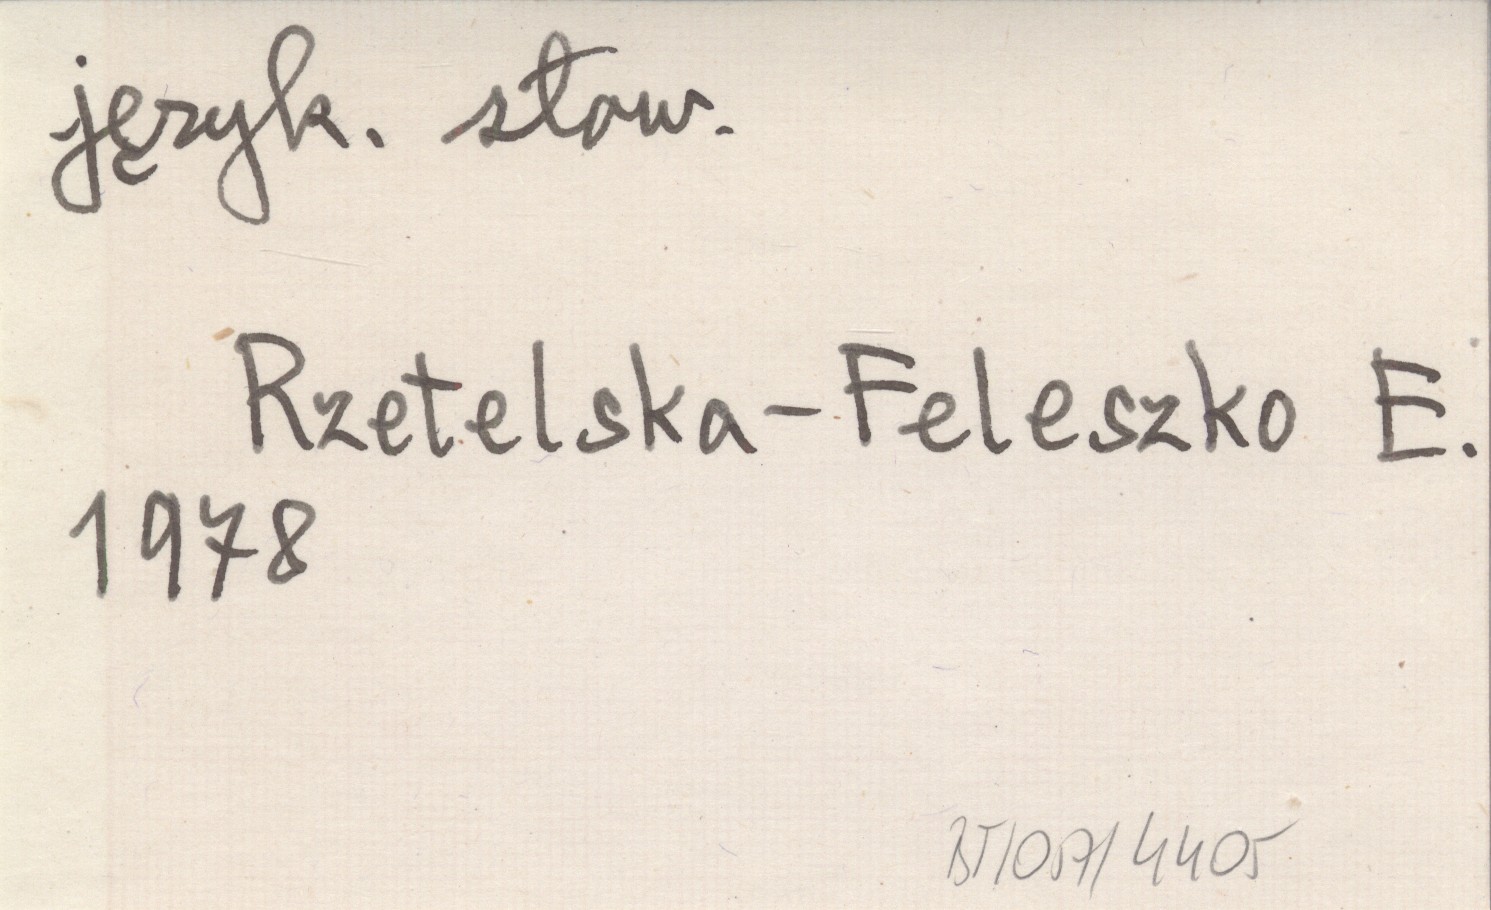 język. słow.
Rzetelska-Feleszko E.
1978
BT/057/4405